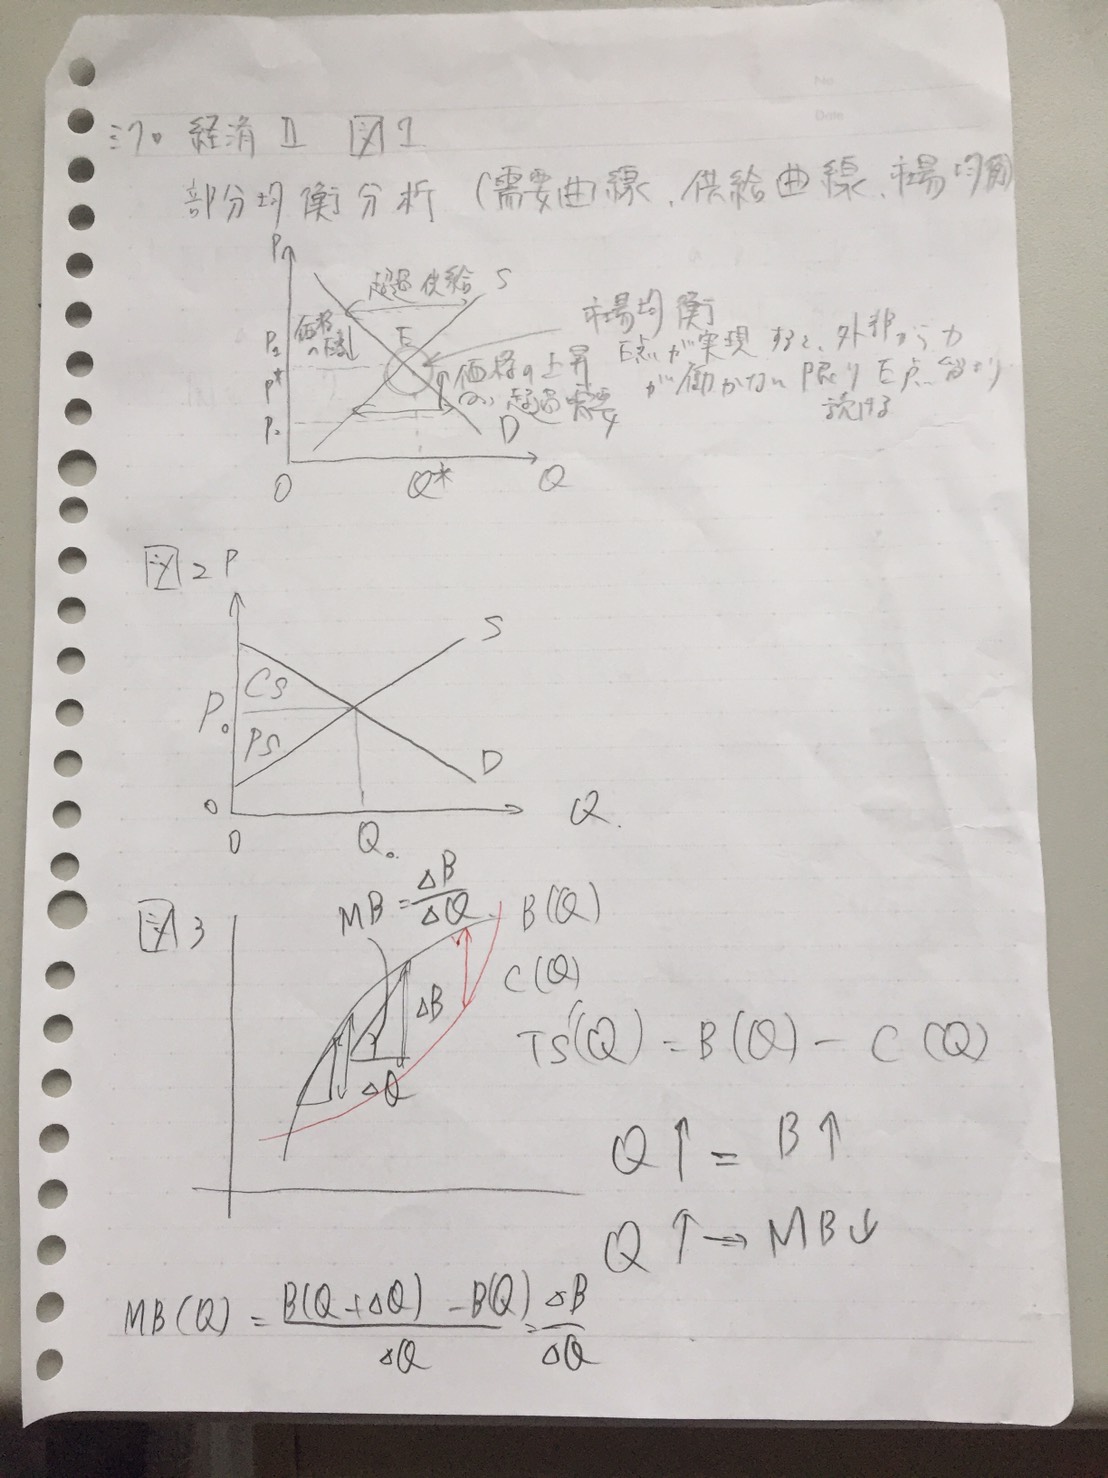 ミクロ経済Ⅱ 図1
部分均衡分析 (需要曲線、供給曲線、市場均衡
P
超過供給
S
価格の下落
P₂
E
P*
P₁
市場均衡
E点が実現すると、外部から力
が働かない限りE点に留まり
続ける
価格の上昇
超過需要
D
O
Q*
Q
図2 P
S
CS
P₀
PS
D
O
O
Q₀
Q
図3
MB = ΔB/ΔQ
B(Q)
C(Q)
ΔB
ΔQ
TS(Q) = B(Q) - C(Q)
Q↑ = B↑
Q↑→MB↓
MB(Q) = B(Q+ΔQ) - B(Q)/ΔQ = ΔB/ΔQ